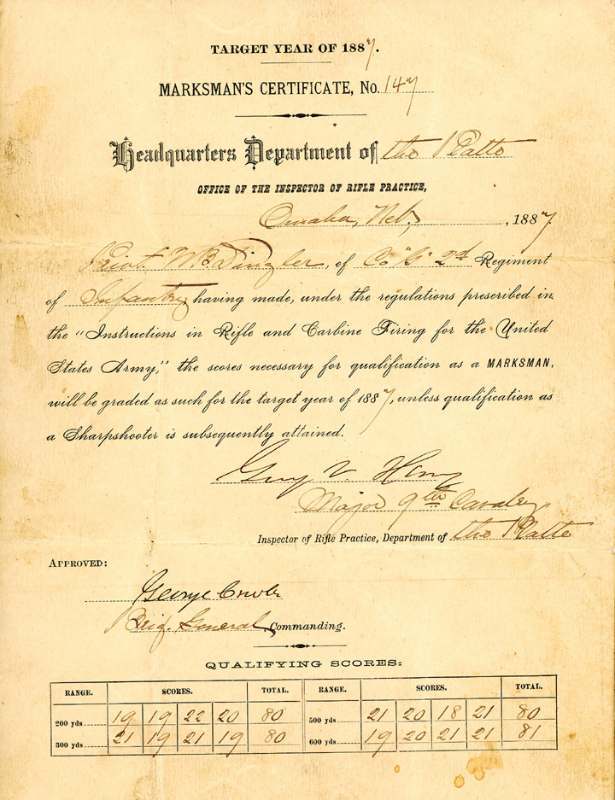 TARGET YEAR OF 1887.
MARKSMAN'S CERTIFICATE, No. 147
Headquarters Department of the Platte
OFFICE OF THE INSPECTOR OF RIFLE PRACTICE,
Omaha, Neb, , 1887
of Co. 2d Regiment
of Infantry having made, under the regulations prescribed in
the "Instructions in Rifle and Carbine Firing for the United
States Army," the scores necessary for qualification as a MARKSMAN,
will be graded as such for the target year of 1887, unless qualification as
a Sharpshooter is subsequently attained.
Guy V. Henry
Major 9th Cavalry
Inspector of Rifle Practice, Department of the Platte
APPROVED:
George Crook
Brig. General, Commanding.
QUALIFYING SCORES:
RANGE. SCORES. TOTAL. RANGE. SCORES. TOTAL.
200 yds 19 19 22 20 80 500 yds 21 20 18 21 80
300 yds 21 19 21 19 80 600 yds 19 20 21 21 81